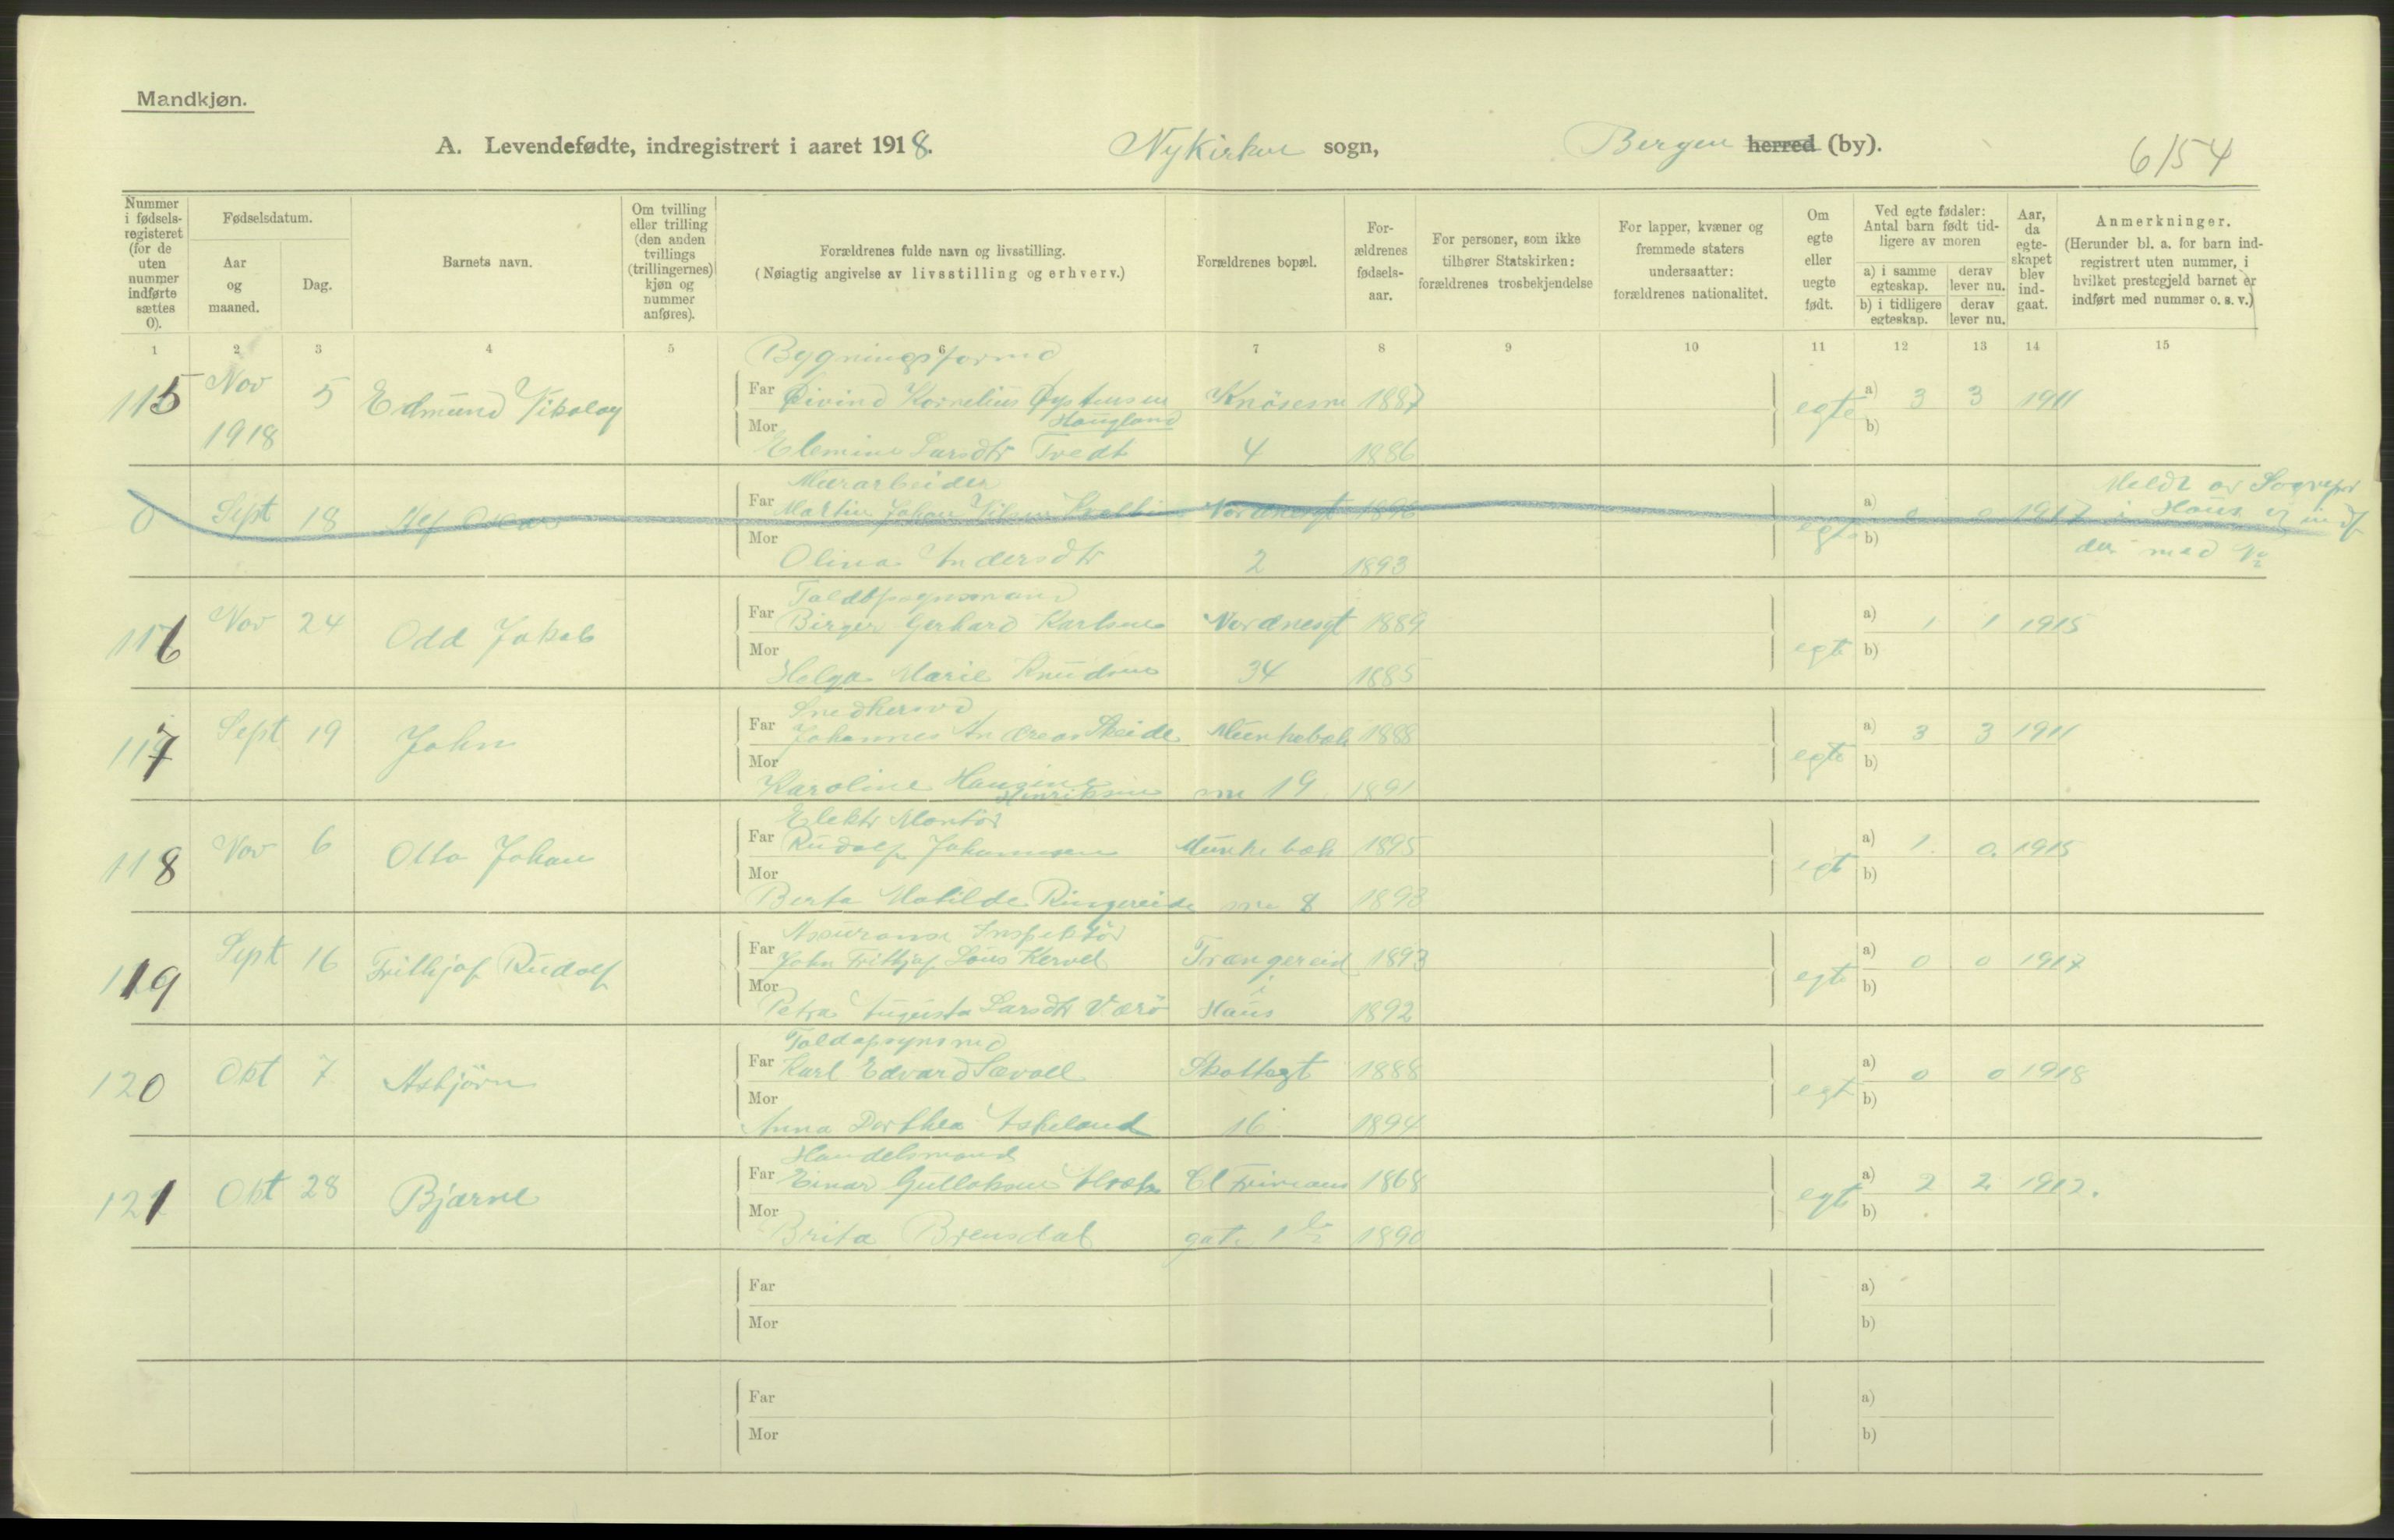 Mandkjøn.
A. Levendefødte, indregistrert i aaret 1918. Nykirken sogn, Bergen herred (by). 6/54
Nummer i fødsels-registeret (for de uten nummer indførte sættes 0).
Fødselsdatum.
Aar og maaned.
Dag.
Barnets navn.
Om tvilling eller trilling (den anden tvillings (trillingernes) kjøn og nummer anføres).
Forældrenes fulde navn og livsstilling.
(Nøiagtig angivelse av livsstilling og erhverv.)
Forældrenes bopæl.
For-ældrenes fødsels-aar.
For personer, som ikke tilhører Statskirken: forældrenes trosbekjendelse
For lapper, kvæner og fremmede staters undersaatter: forældrenes nationalitet.
Om egte eller uegte født.
Ved egte fødsler: Antal barn født tid-ligere av moren
a) i samme egteskap. derav lever nu.
b) i tidligere egteskap. derav lever nu.
Aar, da egte-skapet blev ind-gaat.
Anmerkninger.
(Herunder bl. a. for barn ind-registrert uten nummer, i hvilket prestegjeld barnet er indført med nummer o. s. v.)
1 2 3 4 5 6 7 8 9 10 11 12 13 14 15
Bygningsformd
115 Nov 1918 5 Edmund Nikolay Far Øivind Kornelius Øystensen Knösesm 1887 egte a) 3 3 1911
Hougland
Mor Elemine Larsdtr Tvedt 4 1886 b)
Murarbeider
0 Sept 18 Alf Oskar Far Martin Johan Nordnesgt 1896 egte a) 0 0 1917 Meldt av Sognepr i Haus ej indf der med No
Mor Olina Andersdtr 2 1893 b)
Toldopsynsmand
116 Nov 24 Odd Jakob Far Birger Gerhard Karlsen Nordnesgt 1889 egte a) 1 1 1915
Mor Helga Marie Knudsen 34 1885 b)
Snedkersvd
117 Sept 19 John Far Johannes Andreas Skeide Munkebæk 1888 egte a) 3 3 1911
Mor Karoline Hansine Henriksen sm 19 1891 b)
Elektr Montör
118 Nov 6 Otto Johan Far Rudolf Johannesen Munkebæk 1895 egt a) 1 0 1915
Mor Berta Matilde Ringereide sm 8 1893 b)
Assuranse Inspektör
119 Sept 16 Frithjof Rudolf Far John Frithjof Lous Kervel Trangereid 1893 egte a) 0 0 1917
Mor Petra Augusta Larsdtr Værö i Haus 1892 b)
Toldopsynsmd
120 Okt 7 Asbjörn Far Karl Edvard Sævold Skottegt 1888 egt a) 0 0 1918
Mor Anna Dorthea Askeland 16 1894 b)
Handelsmand
121 Okt 28 Bjarne Far Einar Gulloksen Cl Frimans 1868 egt a) 2 2 1912.
Mor Brita Brensdal gate 1 1890 b)
Far a)
Mor b)
Far a)
Mor b)